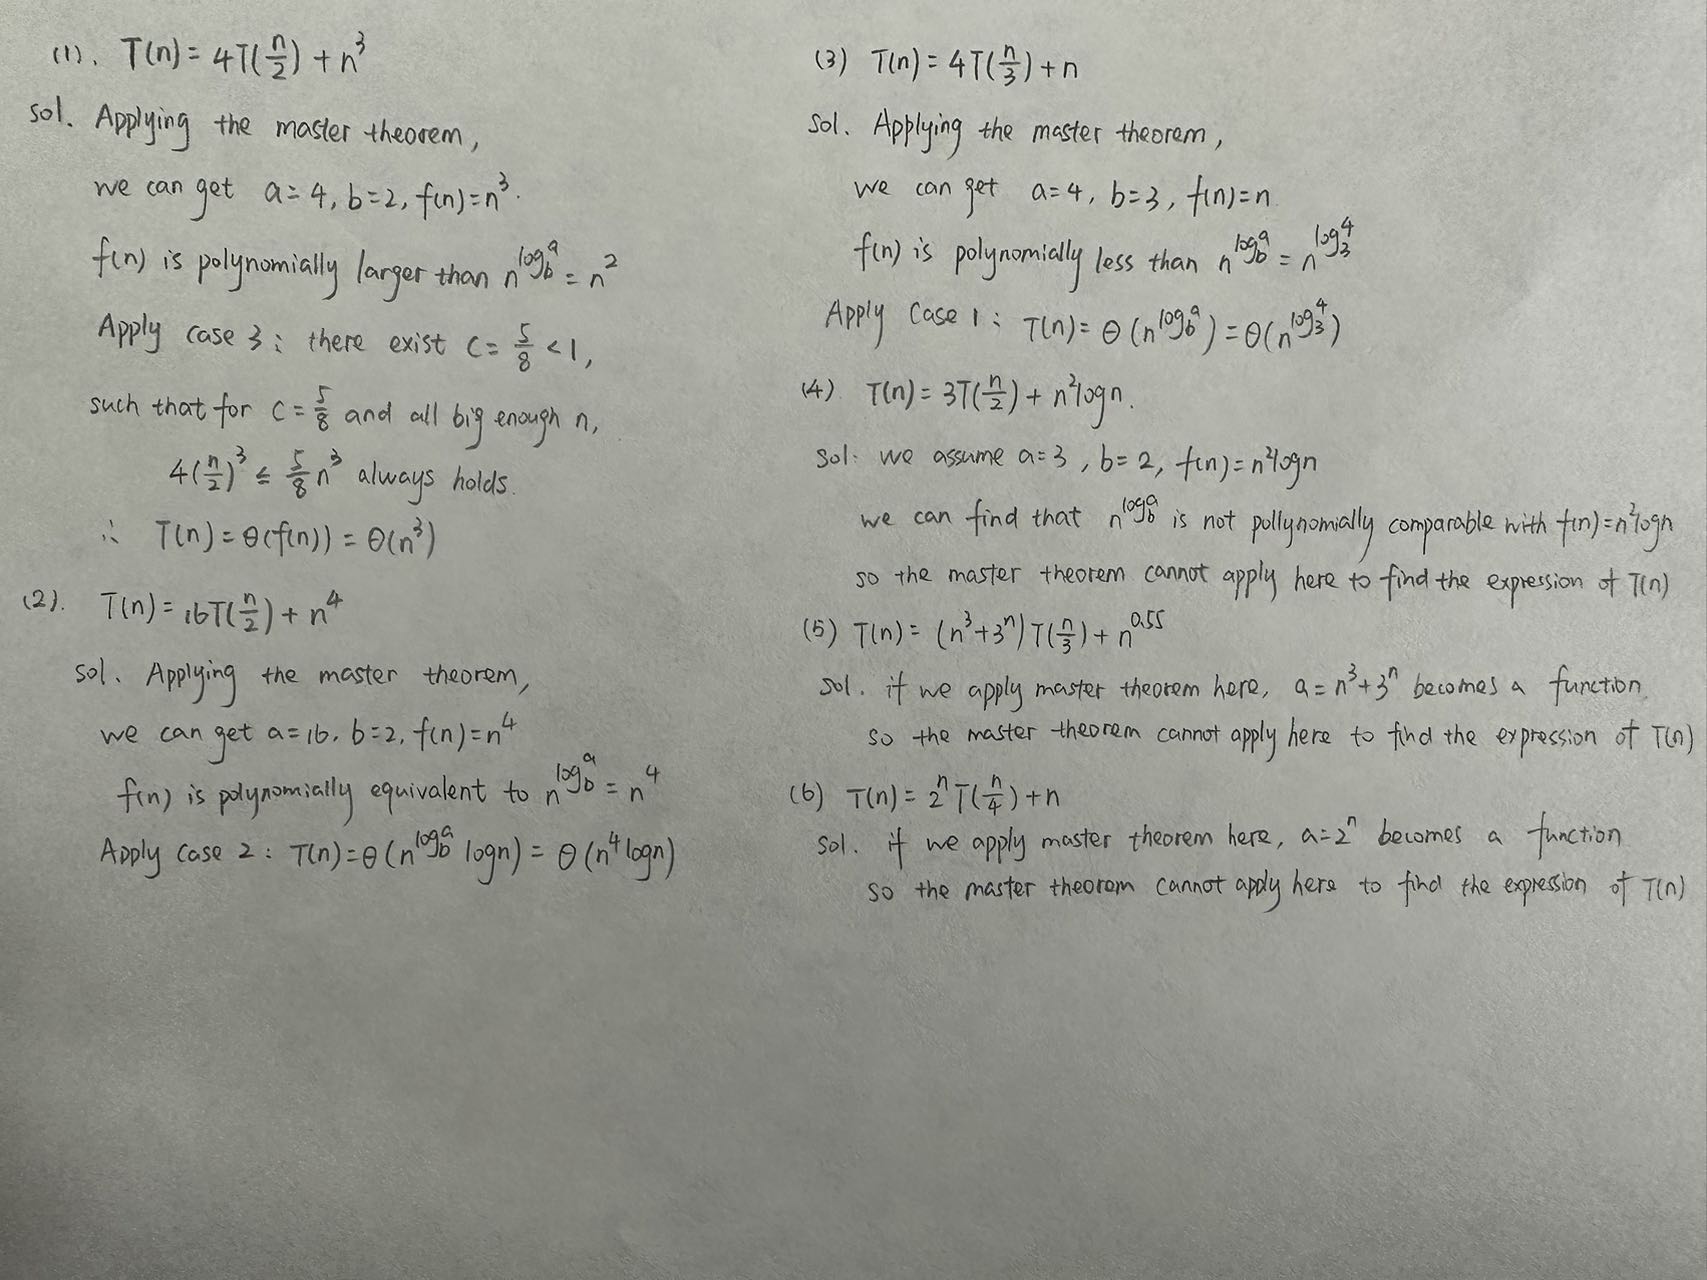 (1). T(n) = 4T(n/2) + n³
sol. Applying the master theorem,
we can get a=4, b=2, f(n)=n³.
f(n) is polynomially larger than n^(log_b a) = n²
Apply case 3: there exist c = 5/8 < 1,
such that for c = 5/8 and all big enough n,
4(n/2)³ ≤ 5/8 n³ always holds.
∴ T(n) = Θ(f(n)) = Θ(n³)
(2). T(n) = 16T(n/2) + n⁴
sol. Applying the master theorem,
we can get a=16, b=2, f(n)=n⁴
f(n) is polynomially equivalent to n^(log_b a) = n⁴
Apply case 2: T(n) = Θ(n^(log_b a) logn) = Θ(n⁴logn)
(3) T(n) = 4T(n/3) + n
sol. Applying the master theorem,
we can get a=4, b=3, f(n)=n
f(n) is polynomially less than n^(log_b a) = n^(log_3 4)
Apply Case 1: T(n) = Θ(n^(log_b a)) = Θ(n^(log_3 4))
(4) T(n) = 3T(n/2) + n²logn.
sol. we assume a=3, b=2, f(n)=n²logn
we can find that n^(log_b a) is not pollynomially comparable with f(n)=n²logn
so the master theorem cannot apply here to find the expression of T(n)
(5) T(n) = (n³+3ⁿ)T(n/3) + n^0.55
sol. if we apply master theorem here, a = n³+3ⁿ becomes a function
so the master theorem cannot apply here to find the expression of T(n)
(6) T(n) = 2ⁿT(n/4) + n
sol. if we apply master theorem here, a=2ⁿ becomes a function
so the master theorem cannot apply here to find the expression of T(n)